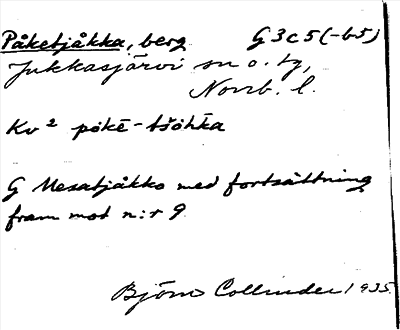 Påketjåkka, berg G3c5(-b5)
Jukkasjärvi sn o. tg,
Norrb. l.
Kv² pòkē-tšòhka
G Mesatjåkko med fortsättning
fram mot n:r 9
Björn Collinder 1935.